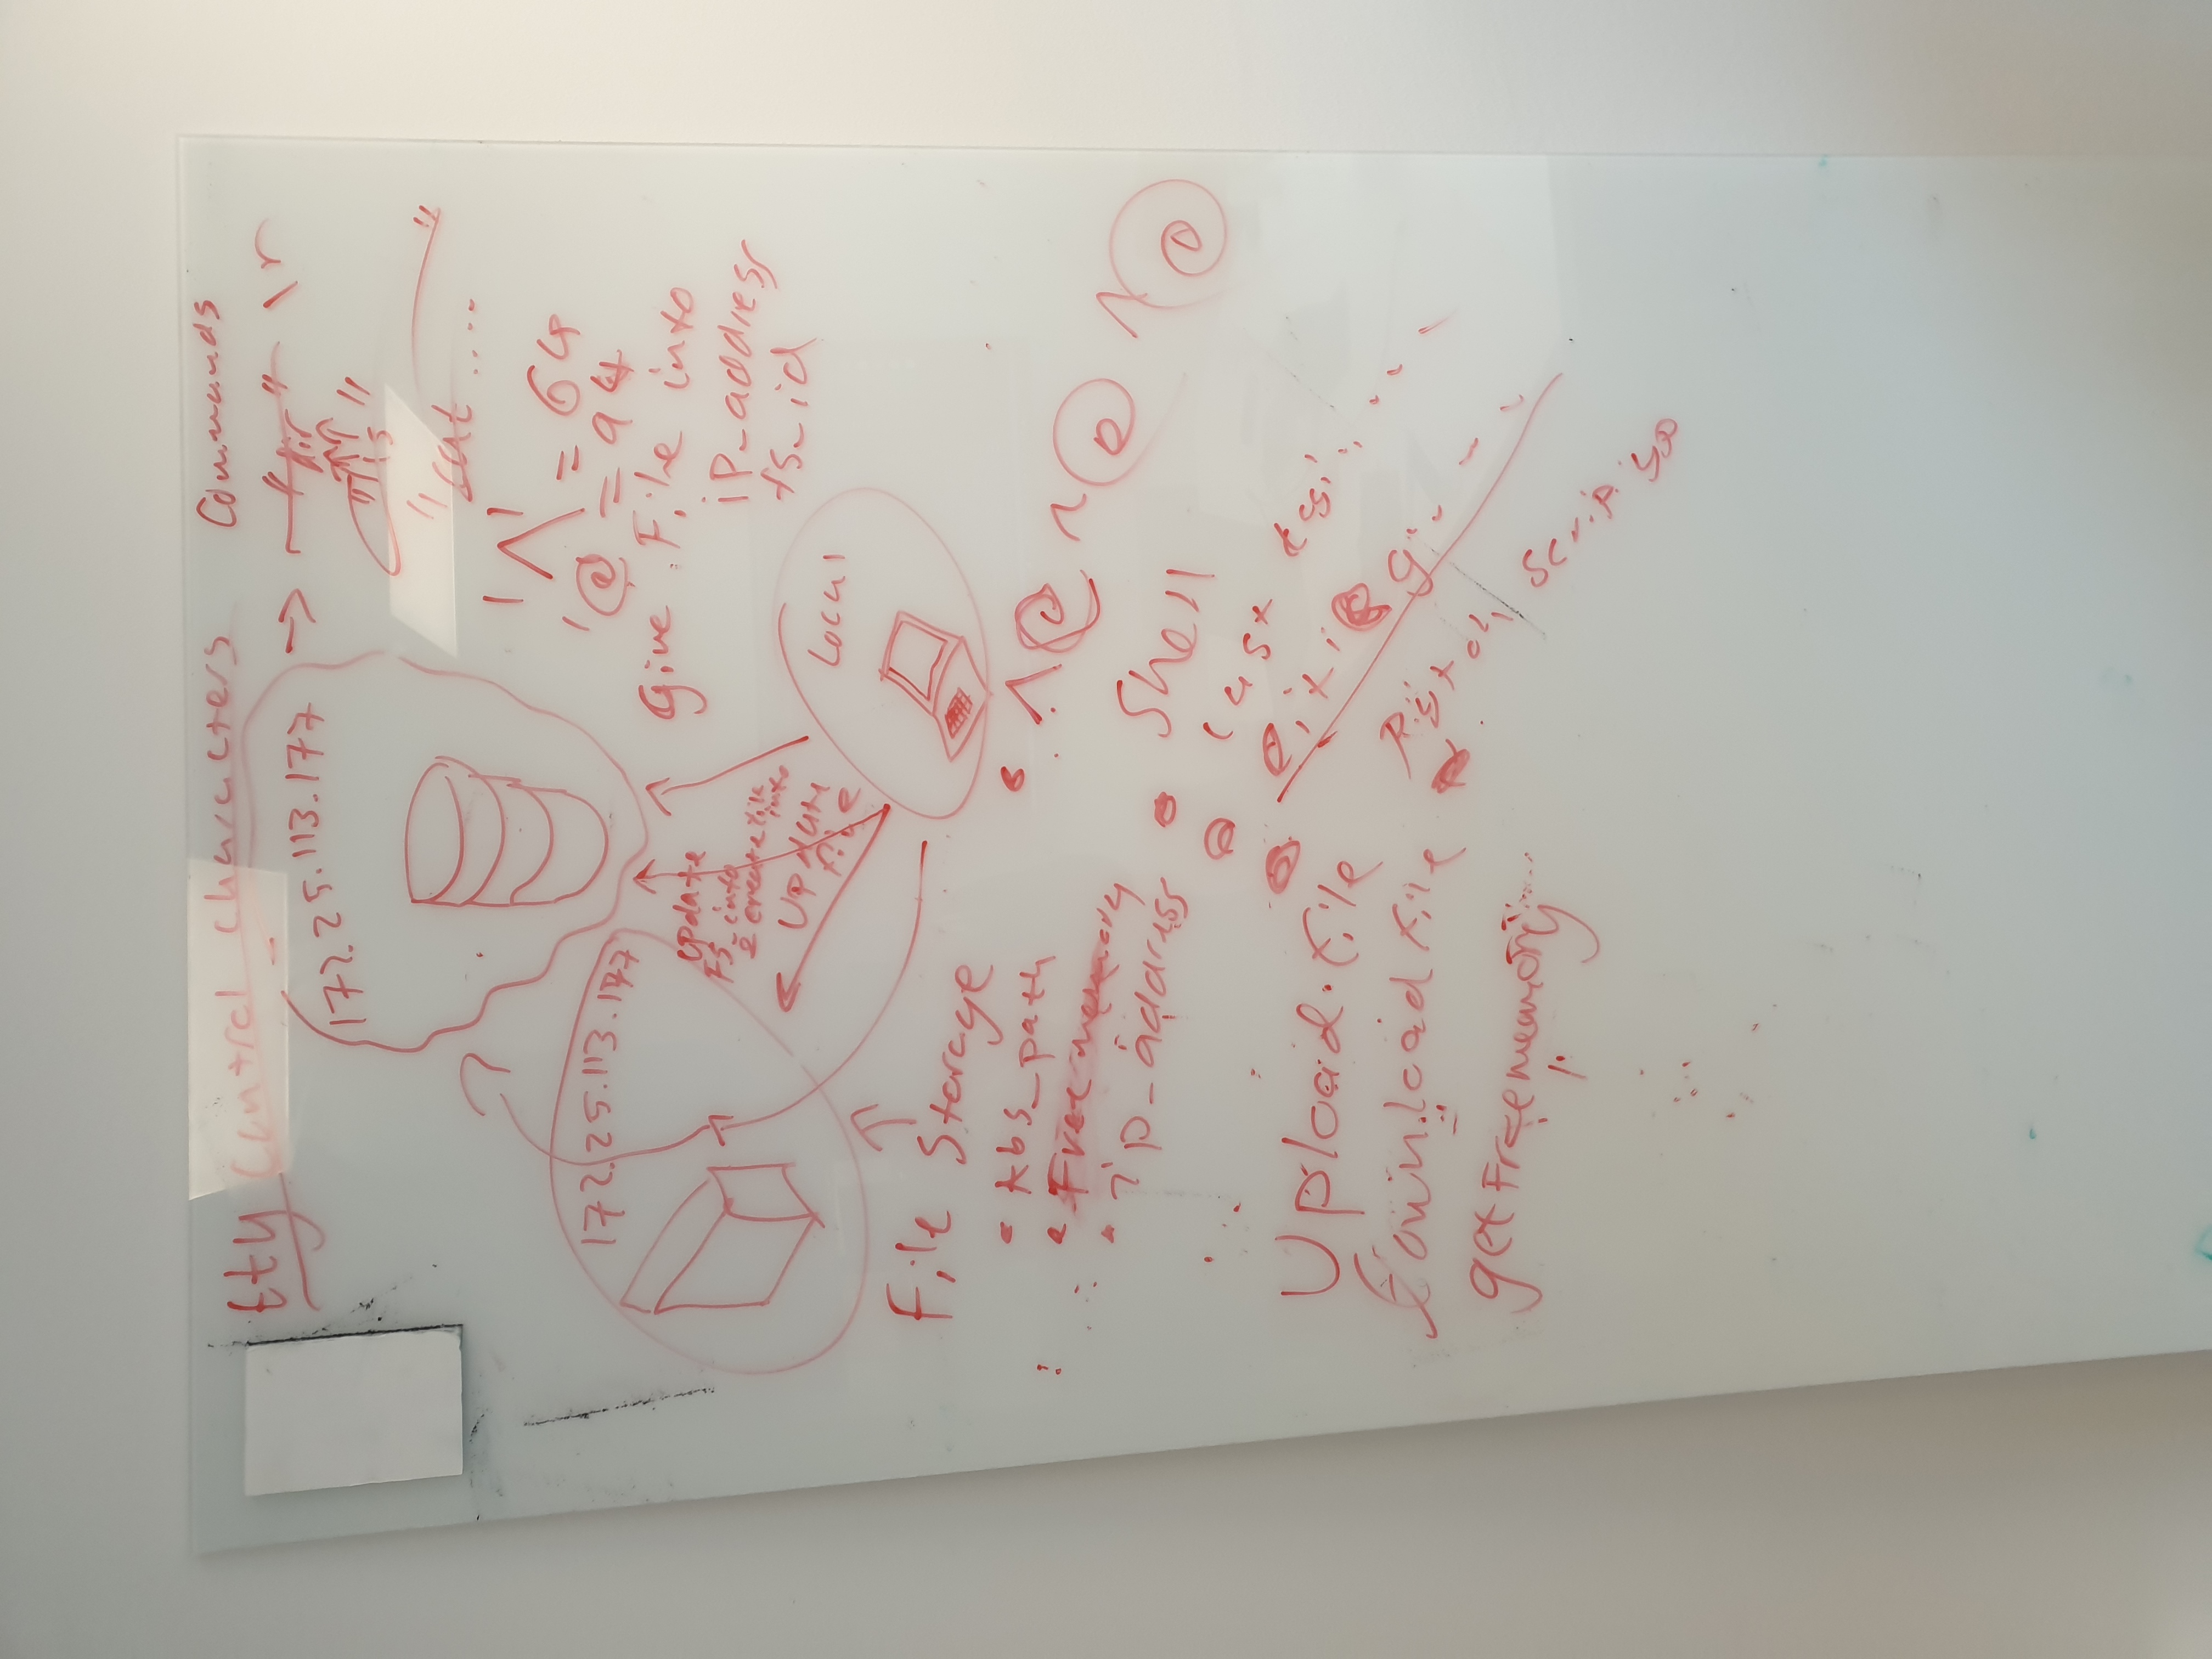 tty control characters
Commands
172.25.113.177
"dir" \r
"ls"
"cat ...."
'^' = 64
'@ = 94
172.25.113.177
Give File info
ip_address
fs_id
update
FS_info
& create file
info
Update
file
Local
File Storage
Abs_path
Free memory
ip_address
^@ ^@ ^@
Shell
Upload file
Download file
getFreememory